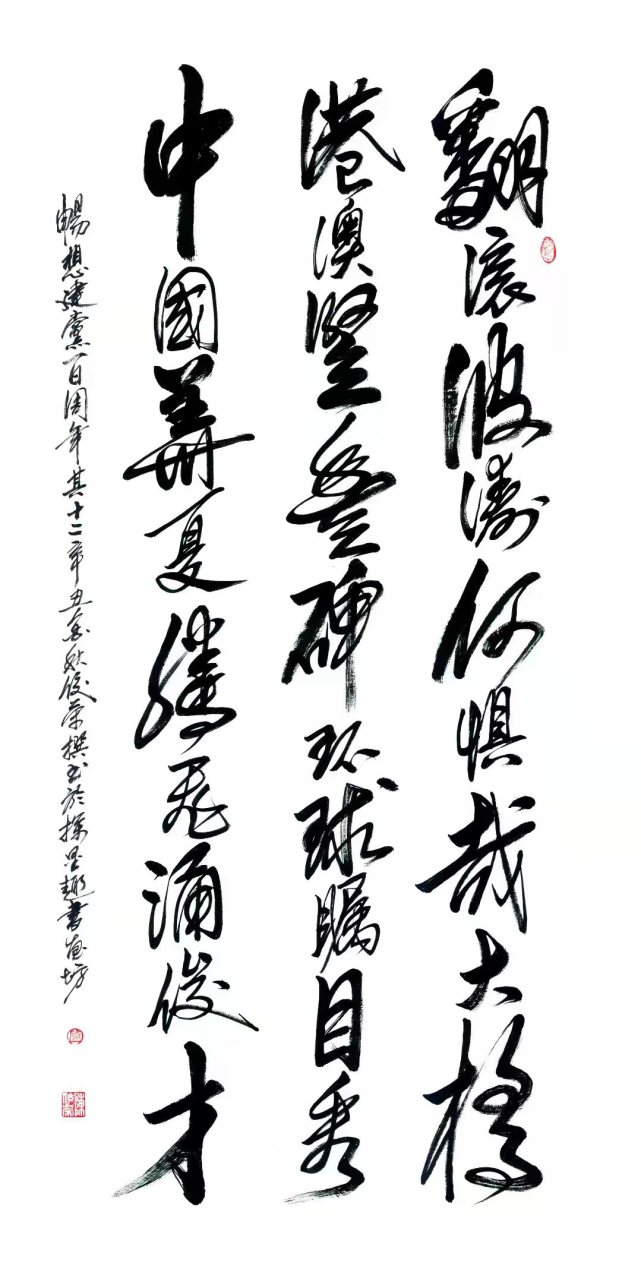 翻滚波涛何惧哉大桥
港澳竖丰碑环球瞩目秀
中國華夏腾飞涌俊才
暢想建黨一百周年其十二辛丑金秋俊荣撰书於探墨趣書画坊